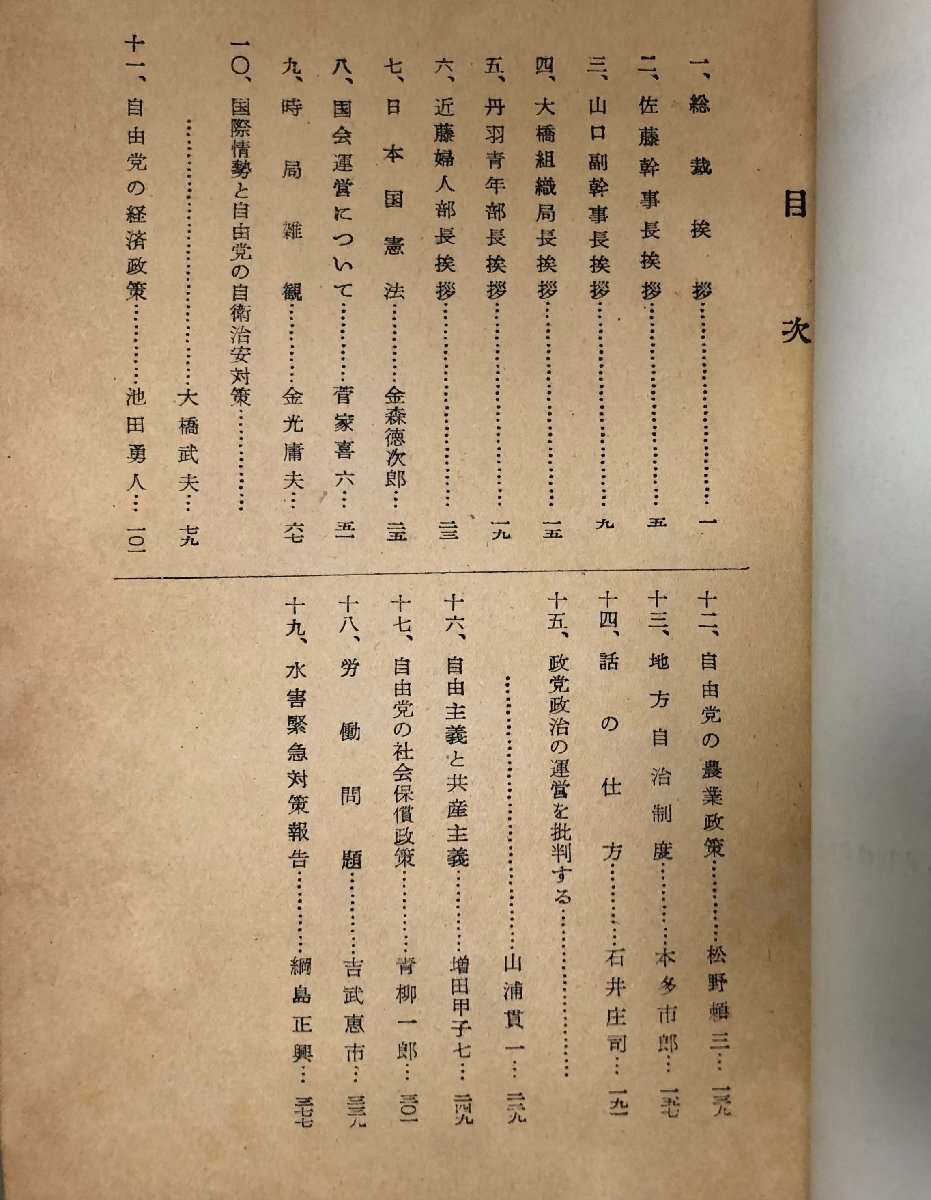 目次
一、総裁挨拶……………………一
二、佐藤幹事長挨拶……………………五
三、山口副幹事長挨拶……………………九
四、大橋組織局長挨拶……………………一五
五、丹羽青年部長挨拶……………………一九
六、近藤婦人部長挨拶……………………二三
七、日本国憲法…………金森徳次郎…二五
八、国会運営について…………菅家喜六…五一
九、時局雑観…………金光庸夫…六七
一〇、国際情勢と自由党の自衛治安対策…………
……………………………………大橋武夫…七九
十一、自由党の経済政策…………池田勇人…一〇一
十二、自由党の農業政策…………松野頼三…一三九
十三、地方自治制度…………本多市郎…一五七
十四、話の仕方…………石井庄司…一九一
十五、政党政治の運営を批判する……………………
……………………………………山浦貫一…二二九
十六、自由主義と共産主義…………増田甲子七…二四九
十七、自由党の社会保償政策…………青柳一郎…三〇一
十八、労働問題…………吉武恵市…三三九
十九、水害緊急対策報告…………綱島正興…三七七